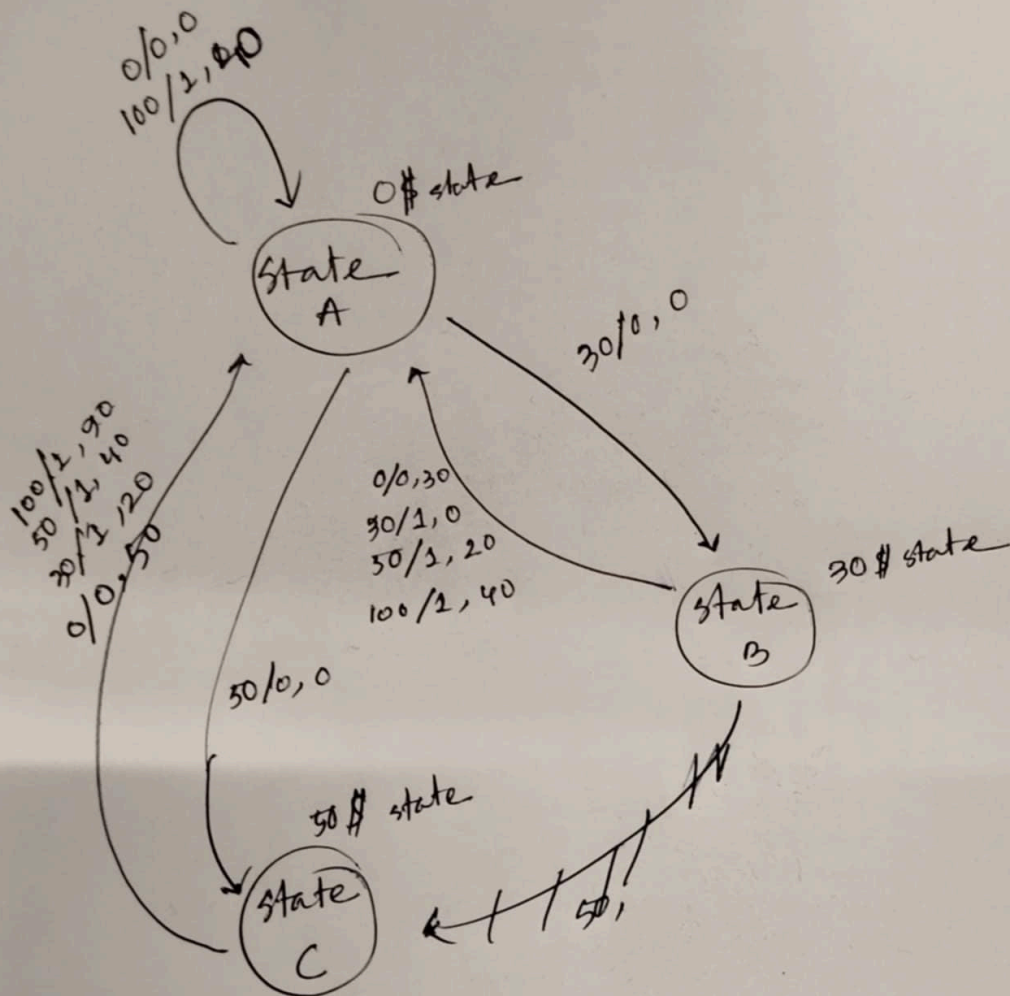 0/0,0
100/1, 40
0$ state
State
A
30/0, 0
100/1, 90
50/1, 40
30/1, 20
0/0, 50
0/0,30
30/1,0
50/1, 20
100/1, 40
30$ state
State
B
50/0, 0
50$ state
State
C
50,